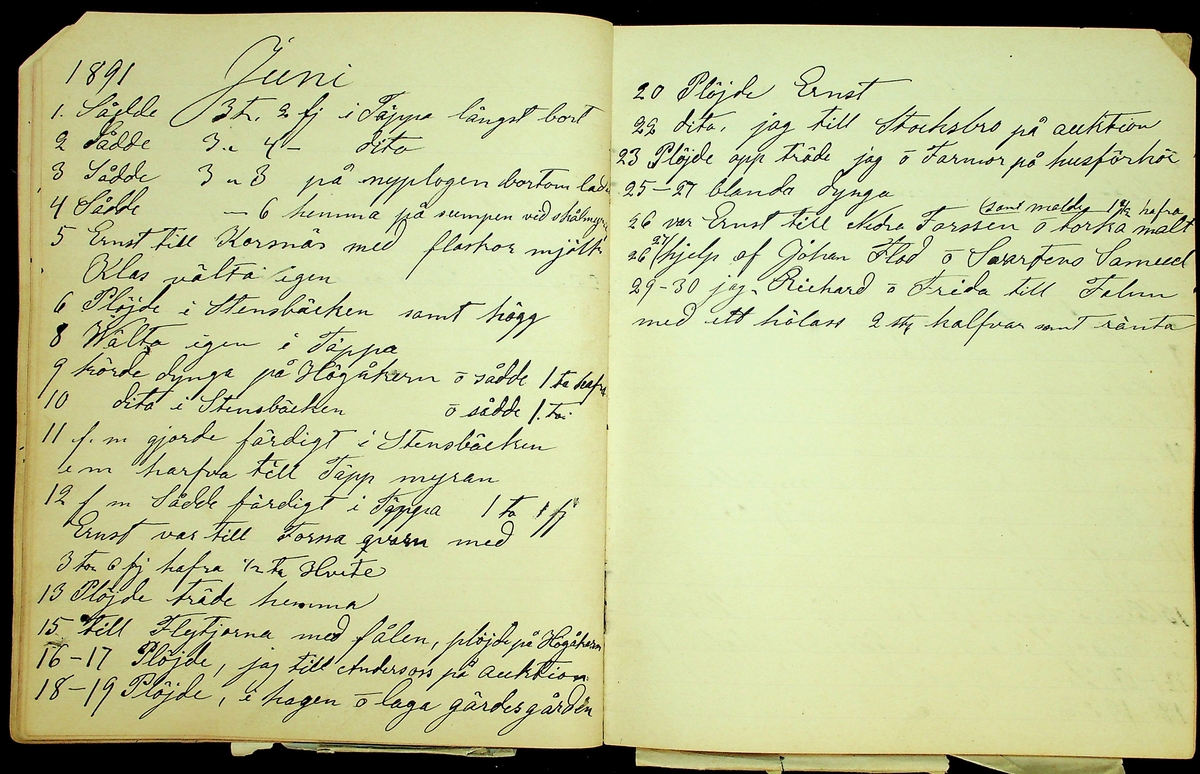 1891 Juni
1. Sådde 3 tr. 2 fj i Täppa längst bort
2 Sådde 3 " 4 – dito
3 Sådde 3 " 3 på nyplogen bortom
4 Sådde – 6 hemma på sumpen ved
5 Ernst till Korsnäs med flaskor mjölk
Klas välta igen
6 Plöjde i Stensbäcken samt högg
8 Wälta igen i Täppa
9 körde dynga på Högåkern ō sådde 1 ta hafra
10 dito i Stensbäcken ō sådde 1. ta.
11 f. m gjorde färdigt i Stensbäcken
e m harfva till Täpp myran
12 f m Sådde färdigt i Täppa 1 ta
Ernst var till Forssa qvarn med
3 tor 6 fj hafra 1/2 ta Hvete
13 Plöjde träde hemma
15 till Flytjorna med fålen, plöjde på Högåkern
16–17 Plöjde, jag till Anderson på auktion
18–19 Plöjde, i hagen ō laga gärdesgården
20 Plöjde Ernst
22 dito, jag till Stocksbro på auktion
23 Plöjde opp träde jag ō Farmor på husförhör
25–27 blanda dynga
samt malde hafra
26 var Ernst till Forssen ō torka malt
26 27 hjelp af Johan Flod ō Svartens Samuel
29–30 jag, Richard ō Frida till Falun
med ett hölass 2 st kalfvar samt ränta